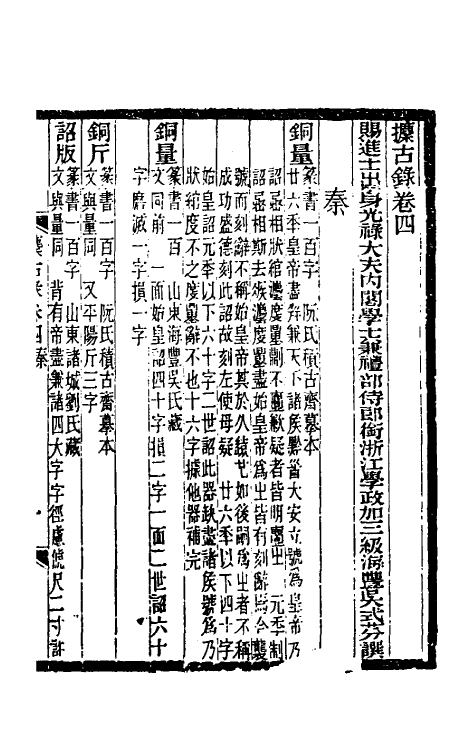 攈古錄卷四
賜進士出身光祿大夫內閣學士兼禮部侍郎銜浙江學政加三級海豐吳式芬譔
秦
銅量
篆書一百字　阮氏積古齋摹本
廿六年皇帝盡幷兼天下諸矦黔首大安立號爲皇帝乃
詔丞相狀綰灋度量劃不壹歉疑者皆明壹之　元年制
詔丞相斯去疾灋度量盡始皇帝爲之皆有刻辭焉今襲
號而刻辭不稱始皇帝其於久遠也如後嗣爲之者不稱
成功盛德刻此詔故刻左使毋疑　廿六年以下四十字
始皇詔元年以下六十字二世詔此器缺盡諸矦號爲乃
狀綰度不之度量辭不也十六字據他器補完
銅量
篆書一百　山東海豐吳氏藏
文同前　一面始皇四十字損二字一面二世詔六十
字磨滅一字損一字
銅斤
篆書一百字　阮氏積古齋摹本
文與量同　又平陽斤三字
詔版
篆書一百字　山東諸城劉氏藏
文與量同　背有帝盡兼諸四大字字徑慮俿尺二寸許
攈古录　卷四秦